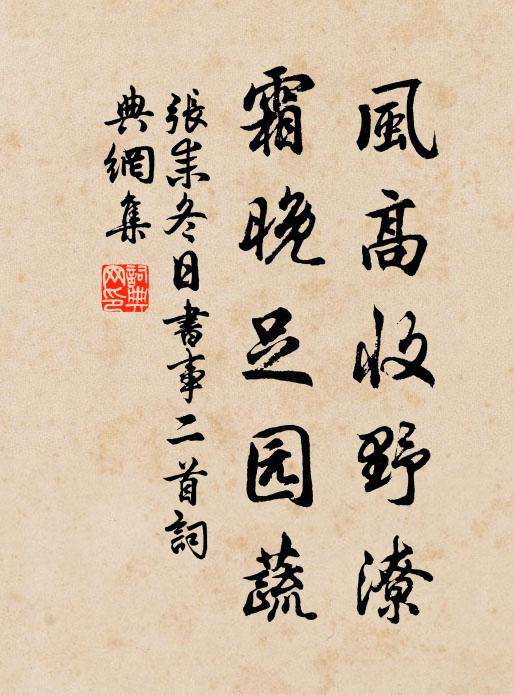 風高收野潦
霜晚足园蔬
張耒冬日書事二首詞
典網集
詞典網印